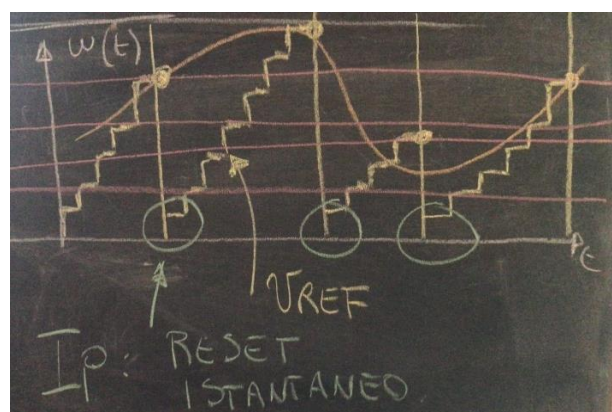 w(t)
t
VREF
Ip: RESET
ISTANTANEO